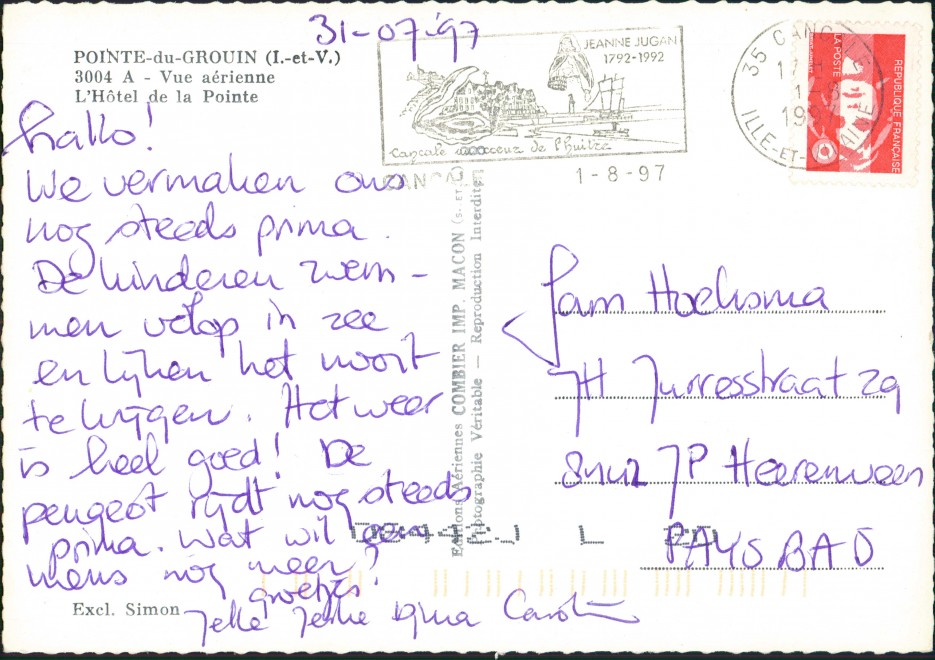 31-07-97
POINTE-du-GROUIN (I.-et-V.)
3004 A - Vue aérienne
L'Hôtel de la Pointe
hallo!
We vermaken ons
nog steeds prima.
De kinderen zwem-
men volop in zee
en lijken het nooit
te krijgen. Het weer
is heel goed! De
peugeot rijdt nog steeds
prima. Wat wil een
mens nog meer?
groetjes
Jelle
Excl. Simon
JEANNE JUGAN
1792-1992
Cancale de l'huître
CANCALE
1-8-97
35 CANCALE
17 H
1-8
1997
ILLE-ET-VILAINE
LA POSTE
REPUBLIQUE FRANÇAISE
Editions Aériennes COMBIER IMP. MACON (S. ET L.)
Photographie Véritable — Reproduction Interdite
Fam Hoeksma
JH Jurresstraat 29
JP Heerenveen
PAYS BAS